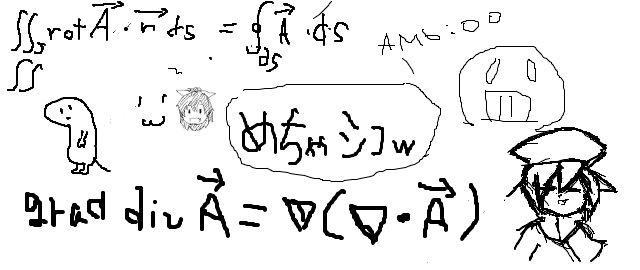 ∬_S rot A⃗ · n⃗ ds = ∮_∂S A⃗ · ds
∬
AM6:00
めちゃシコw
grad div A⃗ = ∇(∇ · A⃗)